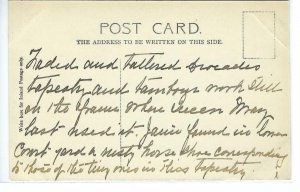 POST CARD.
THE ADDRESS TO BE WRITTEN ON THIS SIDE.
Faded and tattered brocades
tapestry and tambour work still
on the frame when Queen Mary
last used it. Jamie found in lower
Court yard a rusty horse shoe corresponding
to those of the tiny ones in this tapestry.